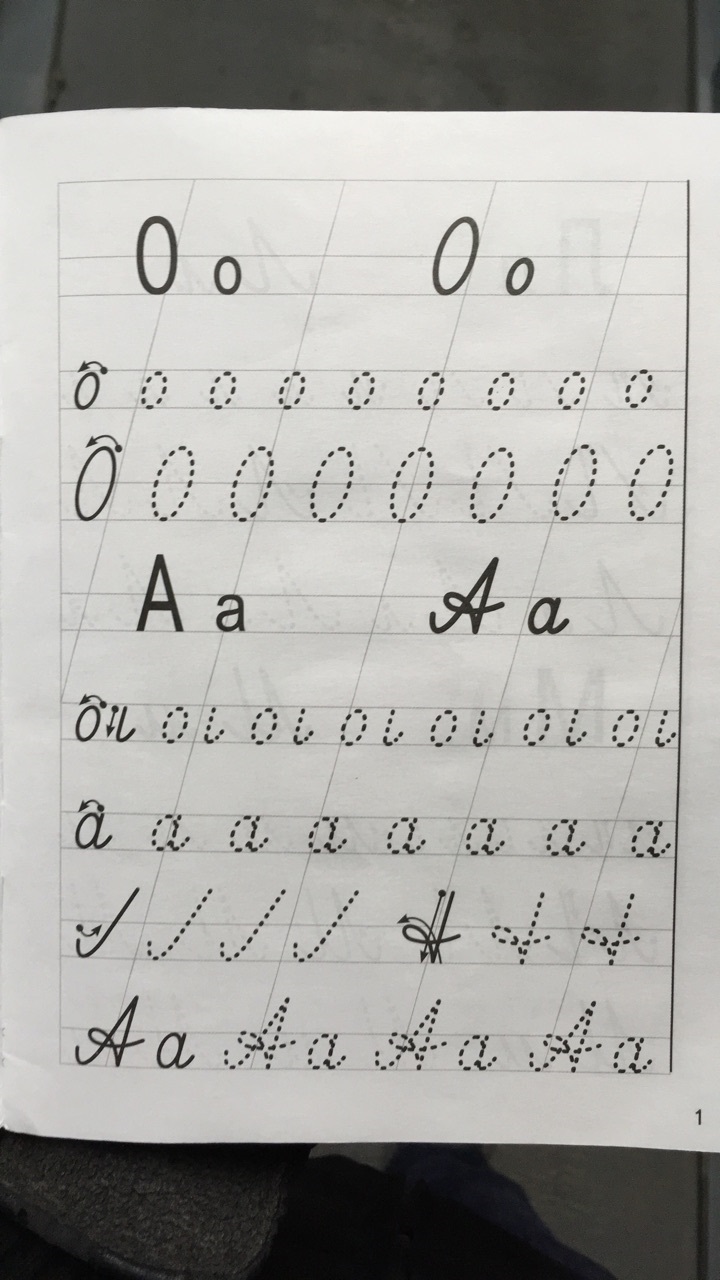 О о О о
о о о о о о о о о
О О О О О О О О
А а А а
о о о о о о о
а а а а а а а а
А а А а А а А а
1